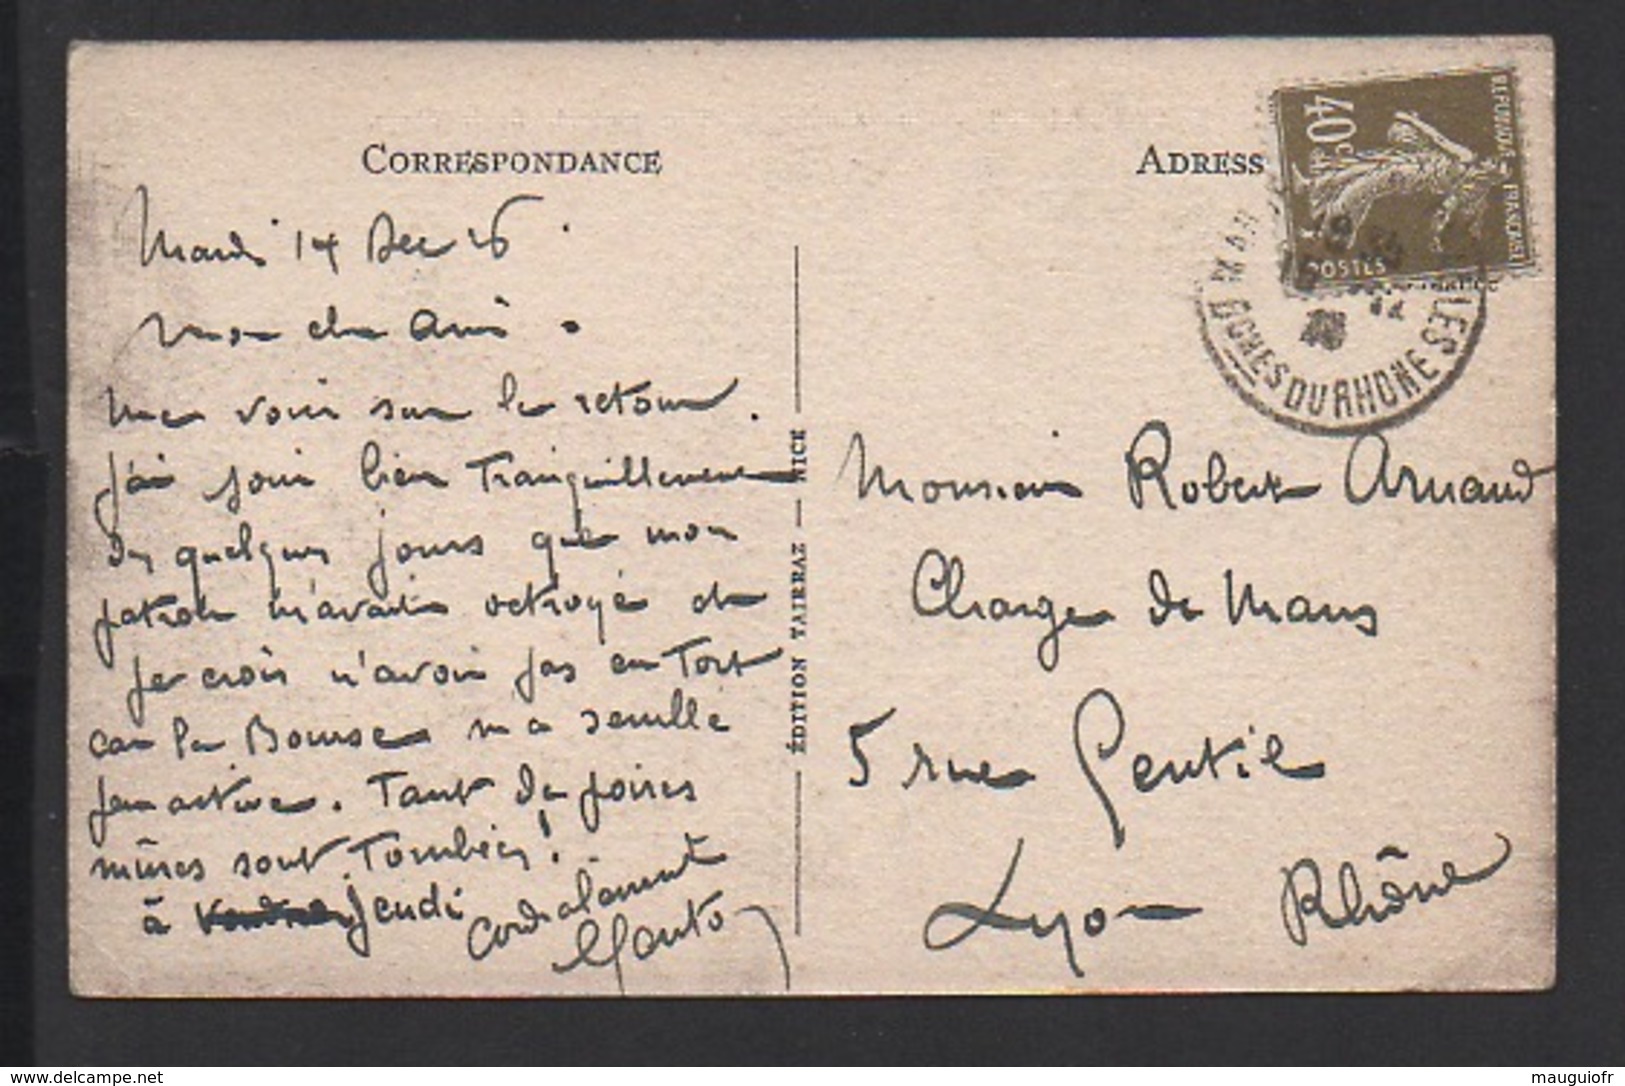 CORRESPONDANCE
Mardi 14 Dec 26
Mon cher Ami.
Me voici sur le retour.
J'ai joui bien Tranquillement
des quelques jours que mon
patron m'avait octroyé et
je crois n'avoir pas eu Tort
car la Bourse m'a semblé
peu active. Tant de poires
mûres sont Tombées!
à jeudi
Cordialement
ÉDITION TAIRRAZ — NICE
ADRESS
40c
REPUBLIQUE FRANÇAISE
POSTES
BCHES DU RHONE
Monsieur Robert Arnaud
Charge de Mans
5 rue Gentil
Lyon Rhône
www.delcampe.net
mauguiofr